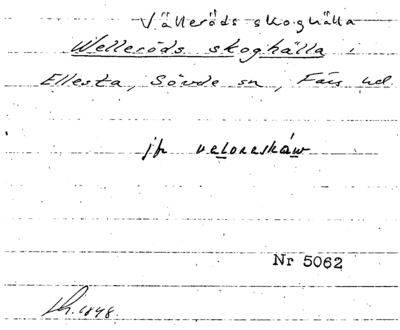 Välleröds skoghälla
Welleröds skoghälla i
Ellesta, Sövde sn, Färs hd
jfr veloreskáw
Nr 5062
1848.